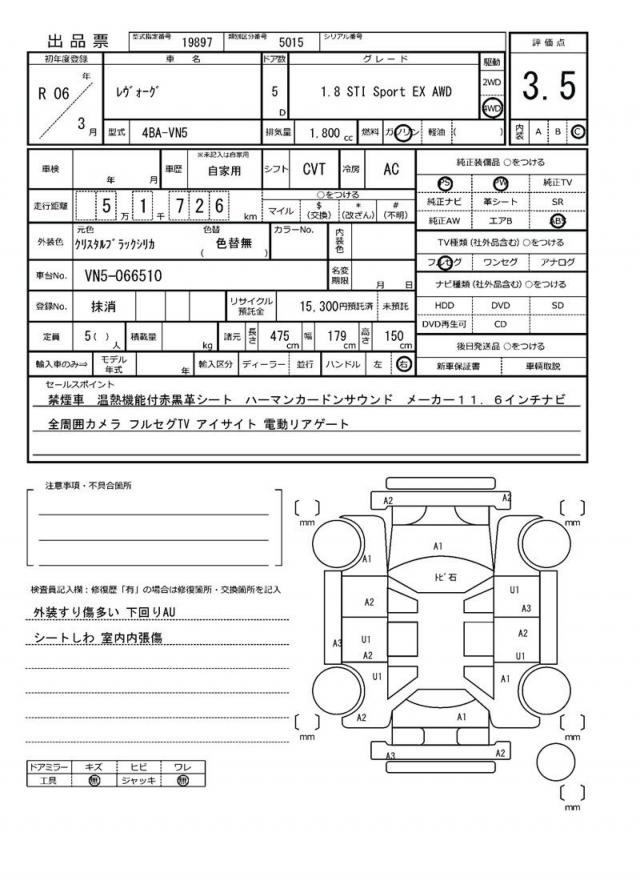 出品票 型式指定番号 19897 類別区分番号 5015 シリアル番号
初年度登録 車名 ドア数 グレード 駆動 評価点
R 06 年 3 月 ﾚｳﾞｫｰｸﾞ 5 D 1.8 STI Sport EX AWD 2WD 4WD 3.5
型式 4BA-VN5 排気量 1.800 cc 燃料 ガソリン 軽油 ( ) 内装 A B C
車検 年 月 車歴 ※未記入は自家用 自家用 シフト CVT 冷房 AC 純正装備品 ○をつける
PS PW 純正TV
走行距離 5 万 1 千 7 2 6 km ○をつける
マイル $ (交換) * (改ざん) # (不明)
純正ナビ 革シート SR
純正AW エアB ABS
外装色 元色 ｸﾘｽﾀﾙﾌﾞﾗｯｸｼﾘｶ 色替 ( 色替無 ) カラーNo. 内装色
TV種類 (社外品含む) ○をつける
フルセグ ワンセグ アナログ
車台No. VN5-066510 名変期限 月 日
ナビ種類 (社外品含む) ○をつける
登録No. 抹消 リサイクル預託金 15,300円預託済 未預託
HDD DVD SD
DVD再生可 CD
定員 5( ) 人 積載量 kg 諸元 長さ 475 cm 幅 179 cm 高さ 150 cm
後日発送品 ○をつける
輸入車のみ⇒ モデル年式 年 輸入区分 ディーラー 並行 ハンドル 左 右
新車保証書 車輌取説
セールスポイント
禁煙車 温熱機能付赤黒革シート ハーマンカードンサウンド メーカー１１．６インチナビ
全周囲カメラ フルセグTV アイサイト 電動リアゲート
注意事項・不具合箇所
検査員記入欄：修復歴「有」の場合は修復箇所・交換箇所を記入
外装すり傷多い 下回りAU
シートしわ 室内内張傷
ドアミラー キズ ヒビ ワレ
工具 無 ジャッキ 無
A2 A2
[ ] mm [ ] mm
A1 A1
ﾄﾋﾞ石
A2 U1 A3
A3 U1 A2 A2 U1
U1 A1
A2 A1
[ ] mm [ ] mm
A3 A2
[ ] mm